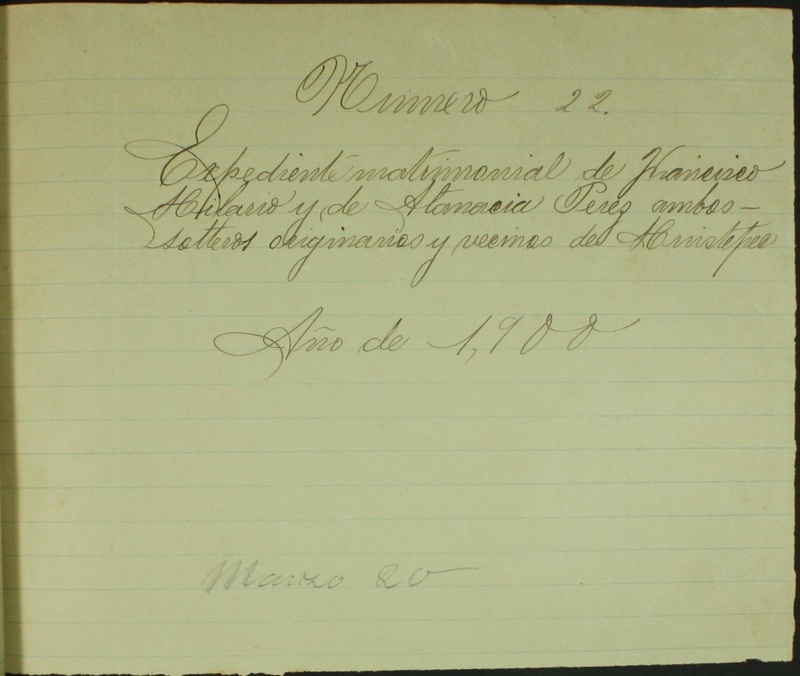 Número 22.
Expediente matrimonial de Francisco
Hilario y de Atanacia Perez ambos –
solteros originarios y vecinos de Huistepec
Año de 1,900
Marzo 20